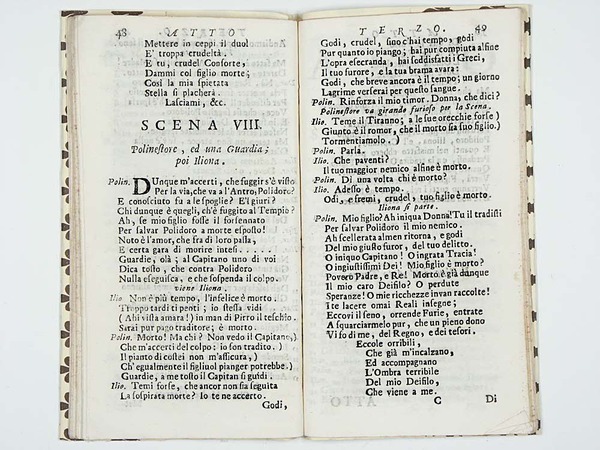 48 ATTO
Mettere in ceppi il duol
E' troppa crudeltà.
E tu, crudel Conforte,
Dammi col figlio morte;
Così la mia spietata
Stella si placherà.
Lasciami, &c.
SCENA VIII.
Polinestore, ed una Guardia;
poi Iliona.
Polin. DUnque m'accerti, che fuggir s'è visto
Per la via, che va a l'Antro, Polidoro?
E conosciuto fu a le spoglie? E'l giuri?
Chi dunque è quegli, ch'è fuggito al Tempio?
Ah, se mio figlio fosse il forsennato
Per salvar Polidoro a morte esposto!
Noto è l'amor, che fra di loro passa,
E certa gara di morire intesi.....
Guardie, olà; al Capitano uno di voi
Dica tosto, che contra Polidoro
Nulla eseguisca, e che sospenda il colpo.
viene Iliona.
Ilio. Non è più tempo, l'infelice è morto.
Troppo tardi ti penti; io stessa vidi
(Ahi vista amara!) in man di Pirro il teschio.
Sarai pur pago traditore; è morto.
Polin. Morto! Ma chi? Non vedo il Capitano,)
Che m'accerti del colpo: io son tradito.)
Il pianto di costei non m'assicura,)
Ch'egualmente il figliuol pianger potrebbe.)
Guardie, a me tosto il Capitan si guidi.
Ilio. Temi forse, che ancor non sia seguita
La sospirata morte? Io te ne accerto.
Godi,
TERZO. 49
Godi, crudel, sino c'hai tempo, godi
Pur quanto io piango; hai pur compiuta alfine
L'opra esecranda, hai soddisfatti i Greci,
Il tuo furore, e la tua brama avara:
Godi, che breve ancora è il tempo; un giorno
Lagrime verserai per questo sangue.
Polin. Rinforza il mio timor. Donna, che dici?
Polinestore va girando furioso per la Scena.
Ilio. Teme il Tiranno; a le sue orecchie forse)
Giunto è il romor, che il morto sia suo figlio.)
Tormentiamolo.)
Polin. Parla.
Ilio. Che paventi?
Il tuo maggior nemico alfine è morto.
Polin. Di una volta chi è morto?
Ilio. Adesso è tempo.
Odi, e fremi, crudel, tuo figlio è morto.
Iliona si parte.
Polin. Mio figlio? Ah iniqua Donna! Tu il tradisti
Per salvar Polidoro il mio nemico.
Ah scellerata almen ritorna, e godi
Del mio giusto furor, del tuo delitto.
O iniquo Capitano! O ingrata Tracia!
O ingiustissimi Dei! Mio figlio è morto?
Povero Padre, e Re! Morto è già dunque
Il mio caro Deifilo? O perdute
Speranze! O mie ricchezze invan raccolte!
Ite lacere omai Reali insegne;
Eccovi il seno, orrende Furie, entrate
A squarciarmelo pur, che un pieno dono
Vi fo di me, del Regno, e dei tesori.
Eccole orribili,
Che già m'incalzano,
Ed accompagnano
L'Ombra terribile
Del mio Deifilo,
Che viene a me.
C Di